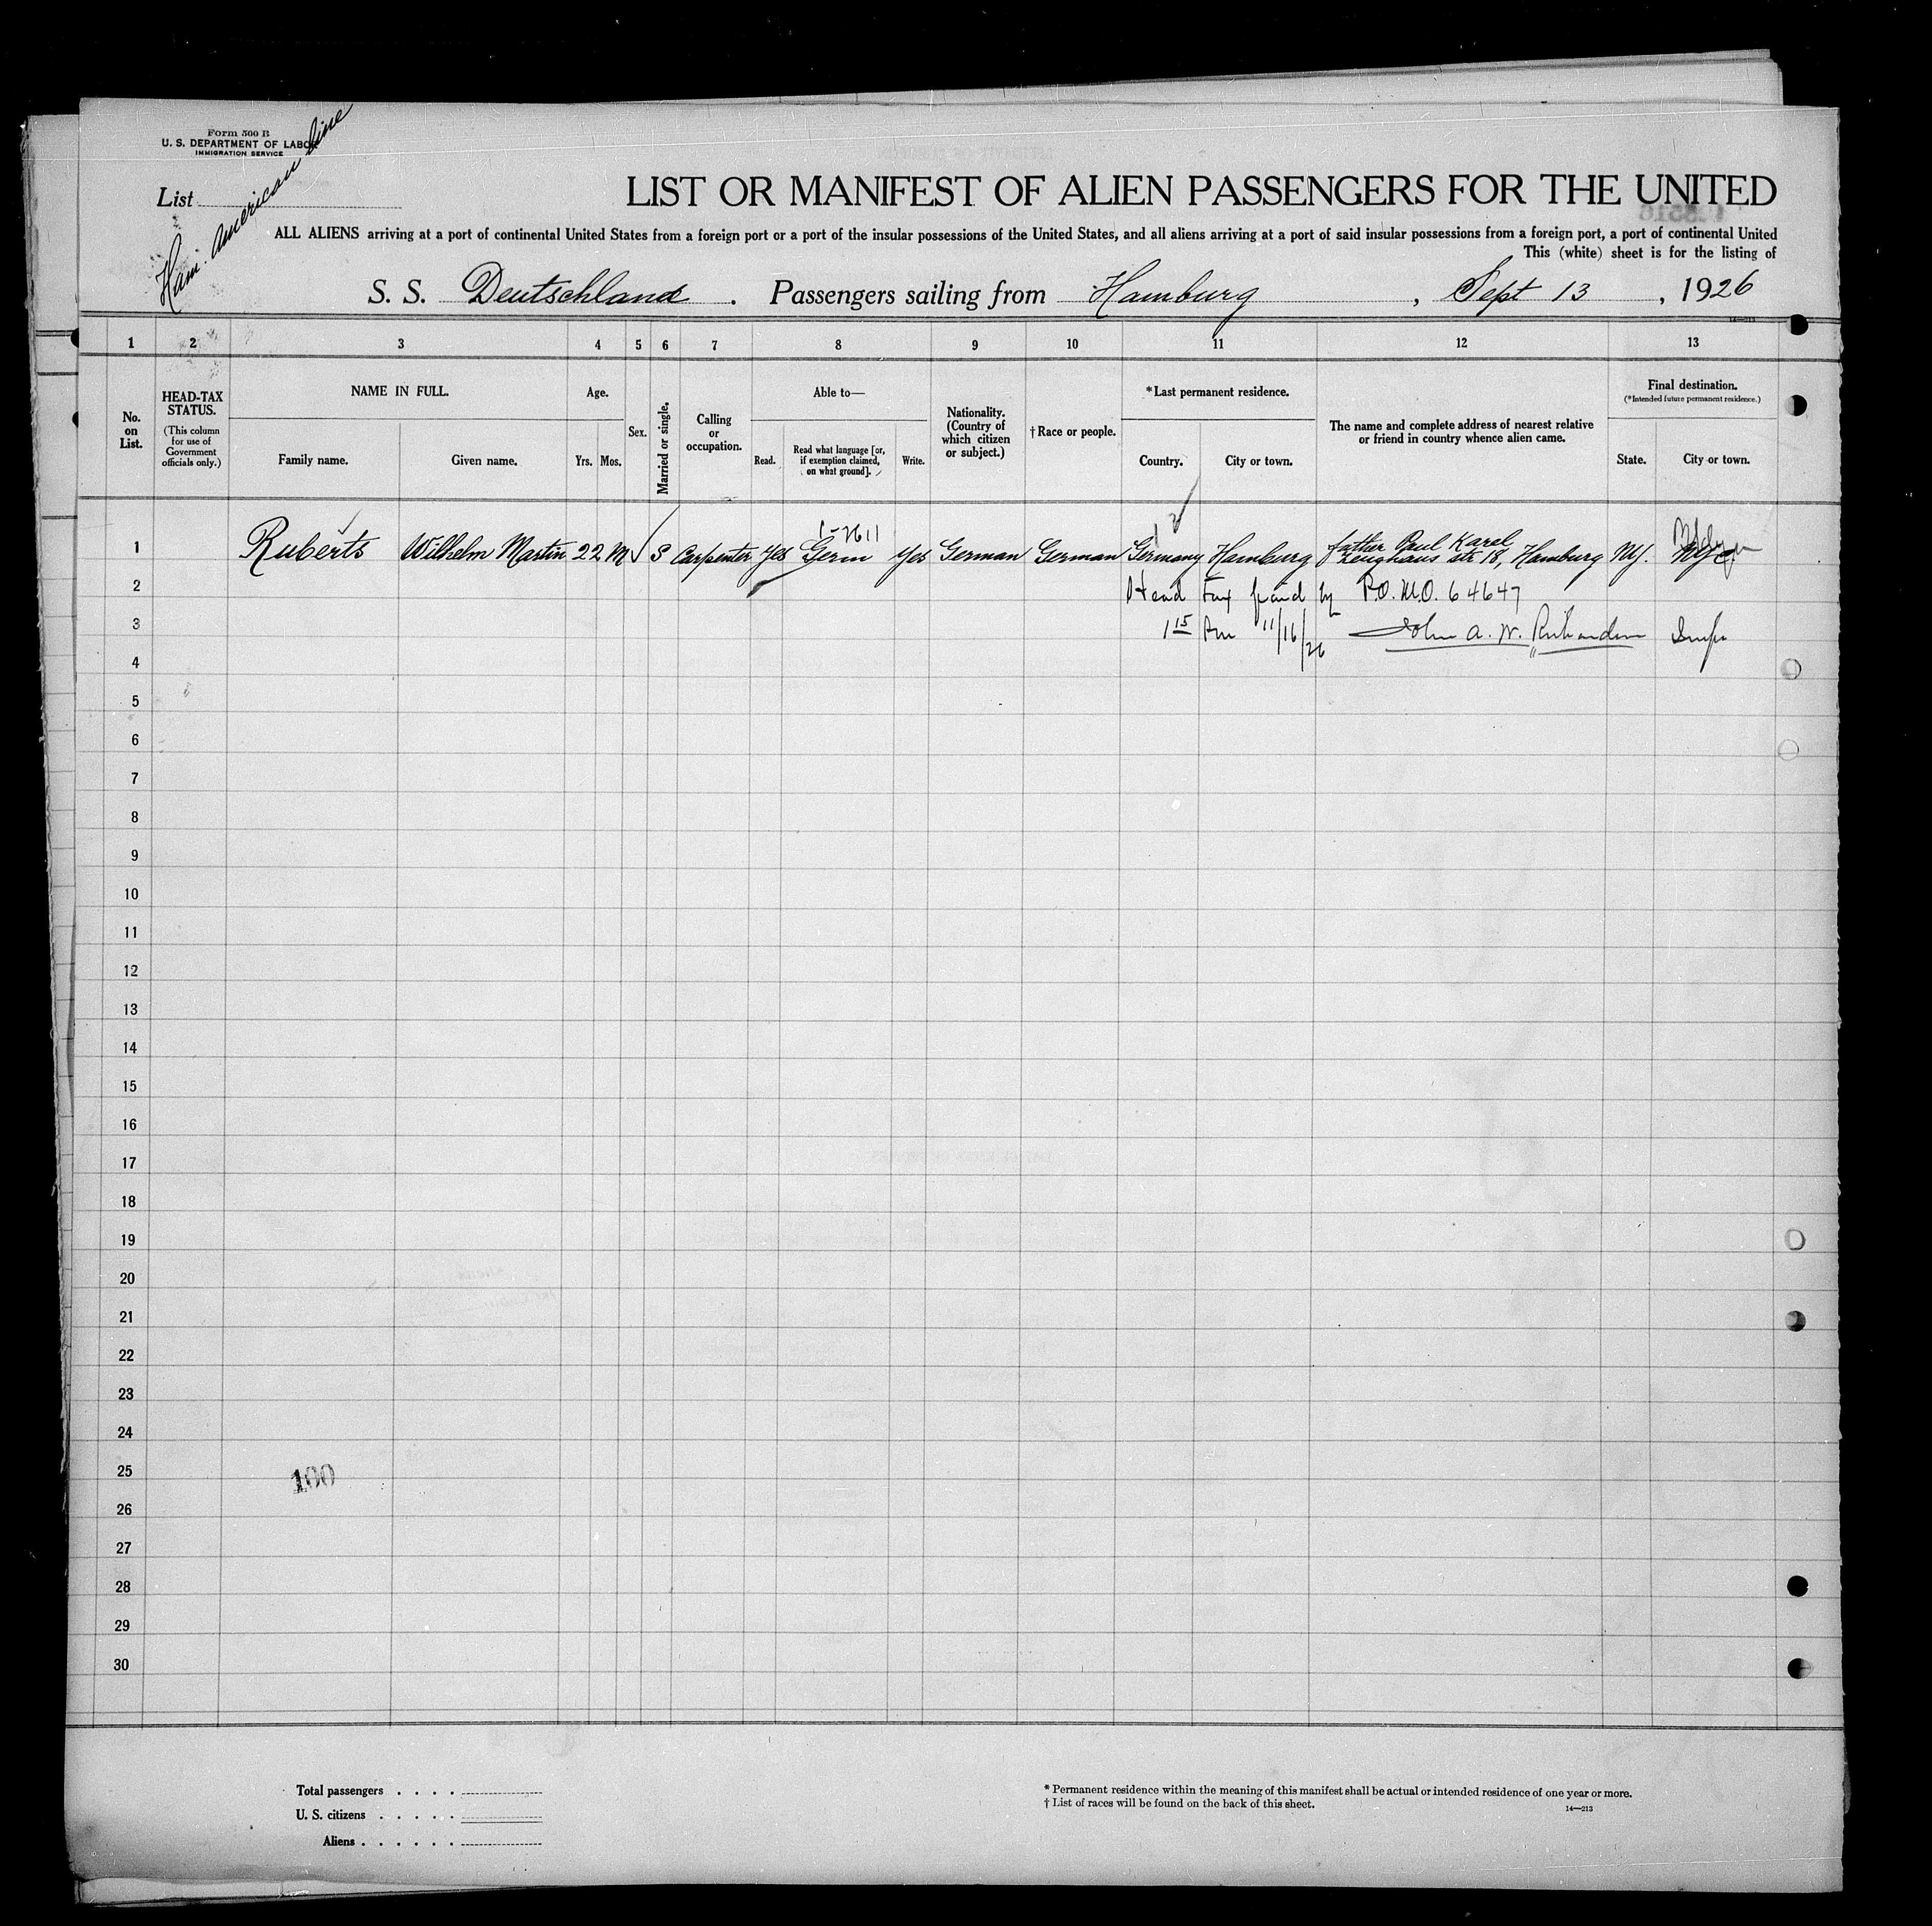 Form 500 B
U. S. DEPARTMENT OF LABOR
IMMIGRATION SERVICE
List
Ham. American Line
LIST OR MANIFEST OF ALIEN PASSENGERS FOR THE UNITED
ALL ALIENS arriving at a port of continental United States from a foreign port or a port of the insular possessions of the United States, and all aliens arriving at a port of said insular possessions from a foreign port, a port of continental United
This (white) sheet is for the listing of
S. S. Deutschland . Passengers sailing from Hamburg , Sept 13 , 1926
14—213
1 2 3 4 5 6 7 8 9 10 11 12 13
No. on List.
HEAD-TAX STATUS.
(This column for use of Government officials only.)
NAME IN FULL.
Family name. Given name.
Age.
Yrs. Mos.
Sex.
Married or single.
Calling or occupation.
Able to—
Read. Read what language [or, if exemption claimed, on what ground]. Write.
Nationality. (Country of which citizen or subject.)
† Race or people.
* Last permanent residence.
Country. City or town.
The name and complete address of nearest relative or friend in country whence alien came.
Final destination.
(*Intended future permanent residence.)
State. City or town.
1 Ruberts Wilhelm Martin 22 M S Carpenter Yes Germ Yes German German Germany Hamburg father Paul Karel Zeughaus str 18, Hamburg NY. NYC
2 Head Tax paid by P.O. M.O. 64647
3 11/16/26 John A. W. Richardson Insp
4
5
6
7
8
9
10
11
12
13
14
15
16
17
18
19
20
21
22
23
24
25
100
26
27
28
29
30
Total passengers . . . .
U. S. citizens . . . . .
Aliens . . . . . .
* Permanent residence within the meaning of this manifest shall be actual or intended residence of one year or more.
† List of races will be found on the back of this sheet.
14—213